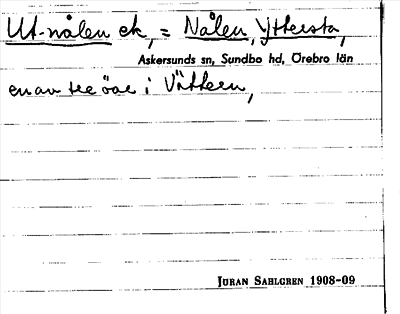 Ut-nålen ek, = Nålen, Yttersta,
Askersunds sn, Sundbo hd, Örebro län
en av tre öar i Vättern,
JÖRAN SAHLGREN 1908-09